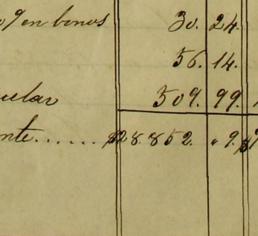 % en bonos 30. 24.
56. 14.
cular 509. 99.
nte...... $28.852. " 9. $